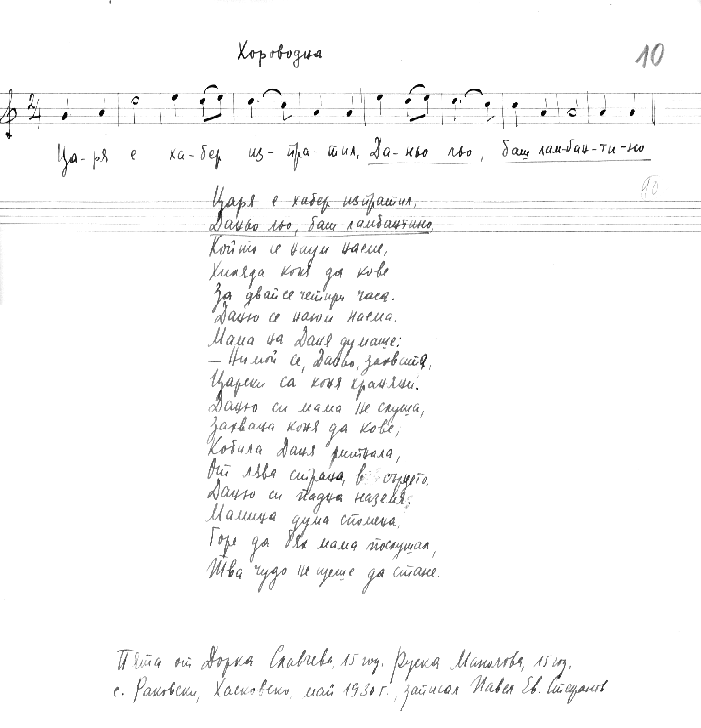 Хороводна
10
Ца-ря е ха-бер из-пра-тил, Да-ньо льо, баш лам-бан-ти-но
Царя е хабер изпратил,
Даньо льо, баш ламбантино,
Който се наеме,
Хиляда коня да кове
За двайсе четири часа.
Даньо се наема.
Мама на Даня думаше:
– Нимой се, Даньо, захвата,
Царски са коня хранени.
Даньо си мама не слуша,
Захвана коня да кове,
Кобила Даня ритнала,
От лява страна, в сърцето.
Даньо си падна наземя,
Мамина дума спомена.
Горе да бях мама послушал,
Тва чудо не щеше да стане.
Пята от Дорка Славчева, 15 год. Руска Манолова, 15 год.
с. Раковски, Хасковско, май 1930 г., записал Павел Ев. Стефанов